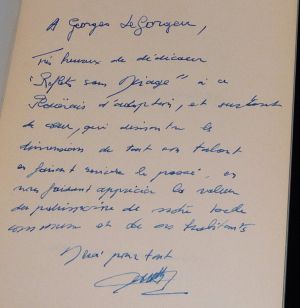 A Georges LeGorgeu,
Très heureux de dédicacer
"Reflets sans Mirage" à ce
d'adoption, et surtout
de cœur, qui démontre la
dimension de tout son talent
en faisant revivre le passé, en
nous faisant apprécier la valeur
du patrimoine de notre
commune et de ses habitants
Merci pour tout